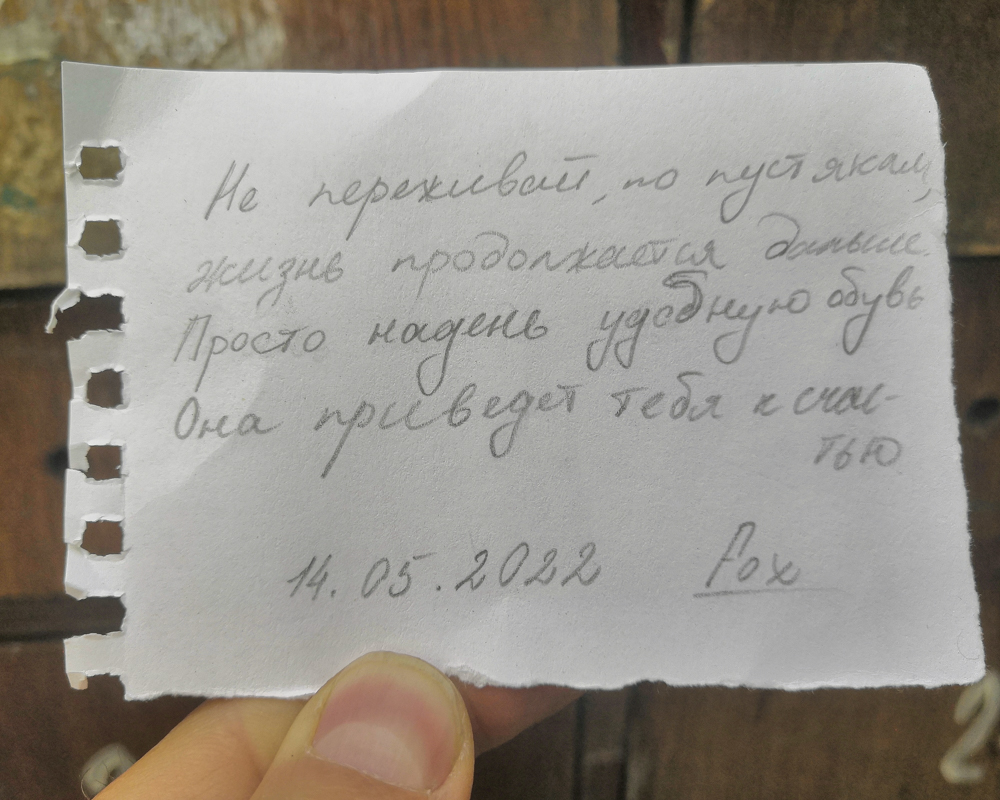 Не переживай, по пустякам,
жизнь продолжается дальше.
Просто надень удобную обувь
Она приведет тебя к счас-
тью
14.05.2022 Fox
2